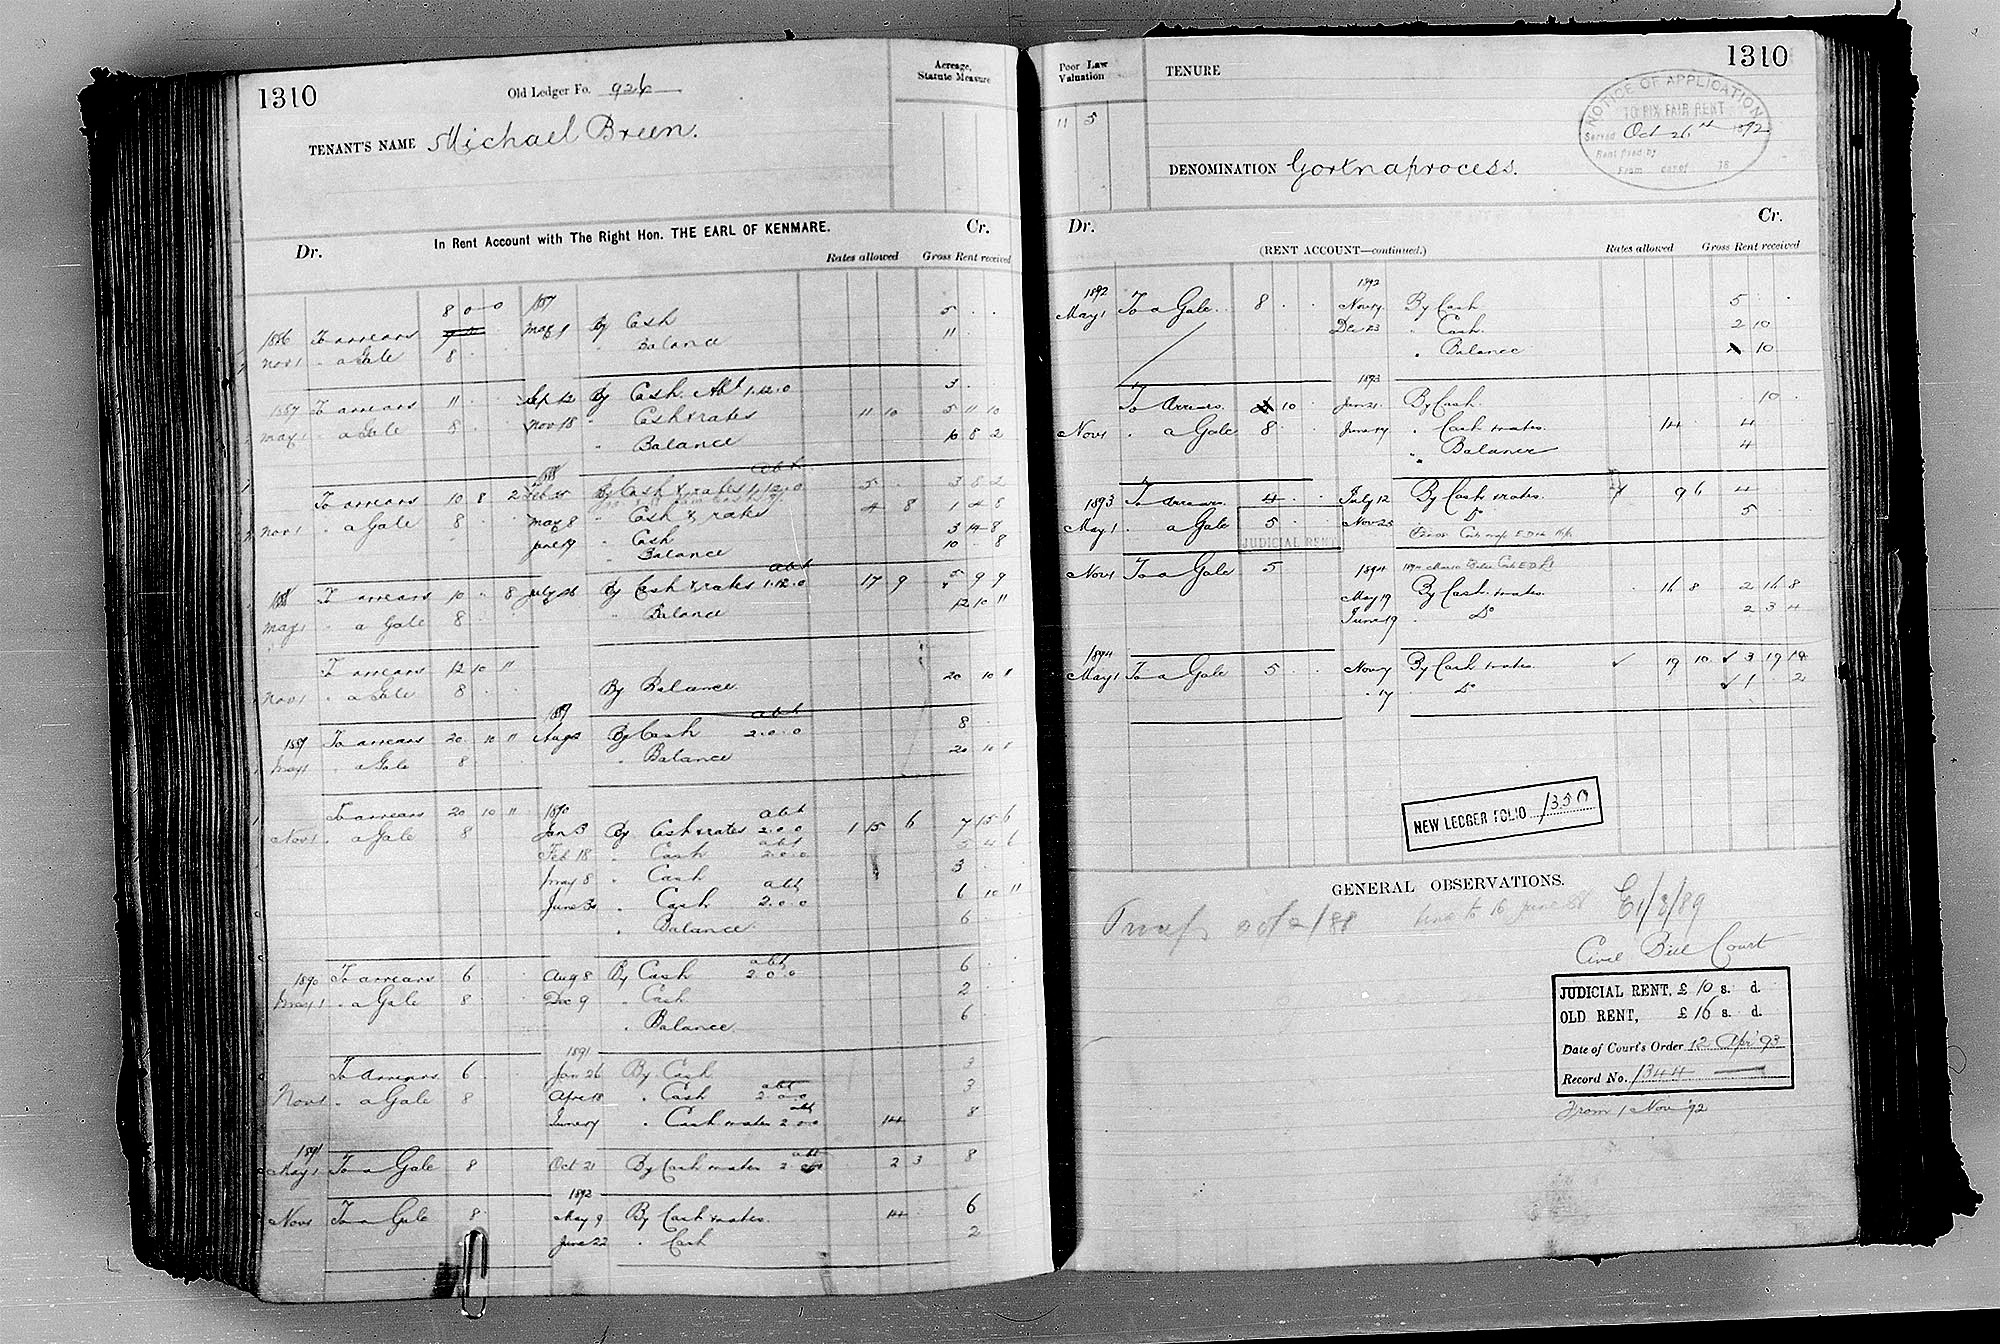 1310
Old Ledger Fo. 926
Acreage, Statute Measure
TENANT'S NAME Michael Breen.
In Rent Account with The Right Hon. THE EARL OF KENMARE.
Dr. Cr.
Rates allowed Gross Rent received
8 0 0 1887
1886 To arrears May 9 By Cash 5 . .
Nov 1 . a Gale 8 . . " Balance 11 . .
1887 To arrears 11 . . Sept 12 By Cash. Abt 1.12.0 3 .
May 1 . a Gale 8 . . Nov 18 " Cash & rates 11 10 5 11 10
" Balance 10 8 2
1888 abt
To arrears 10 8 2 Feb By Cash & rates 1.12.0 5 . 3 8 2
Nov 1 . a Gale 8 . . May 8 " Cash & rates 4 8 1 4 8
June 19 " Cash 3 14 8
Balance 10 . 8
abt
1888 To arrears 10 " 8 July 26 By Cash & rates 1.12.0 17 9 5 9 9
May 1 " a Gale 8 . . " Balance 12 10 11
To arrears 12 10 11
Nov 1 . a Gale 8 . . By Balance 20 10 11
1889 abt
1889 To arrears 20 10 11 Aug 2 By Cash 2.0.0 8
May 1 . a Gale 8 " Balance 20 10 11
To arrears 20 10 11 1890 abt
Nov 1 . a Gale 8 Jan 3 By Cash & rates 2.0.0 1 15 6 7 15 6
abt
Feb 18 " Cash 2.0.0 5 4 6
May 8 " Cash 3
abt
June 30 " Cash 2.0.0 6 10 11
" Balance 6
abt
1890 To arrears 6 . . Aug 8 By Cash 2.0.0 6
May 1 . a Gale 8 . . Dec 9 " Cash 2
" Balance 6
1891
To Arrears 6 . . Jan 26 By Cash 3
abt
Nov 1 . a Gale 8 Apr 18 . Cash 2.0.0 3
abt
June 17 " Cash & rates 2.0.0 14 8
1891 abt
May 1 To a Gale 8 Oct 21 By Cash & rates 2 2 3 8
1892
Nov 1 To a Gale 8 May 9 By Cash & rates. 14 6
June 22 " Cash 2
Poor Law Valuation
TENURE
1310
NOTICE OF APPLICATION
TO FIX FAIR RENT
Served Oct 26th 1892
Rent fixed by
From day of 18
11 5
DENOMINATION Gortnaprocess.
Dr. Cr.
(RENT ACCOUNT—continued.)
Rates allowed Gross Rent received
1892 1892
May 1 To a Gale. 8 . . Nov 17 By Cash 5 . .
Dec 23 " Cash. 2 10
" Balance 10
1893
To Arrears 10 Jan 21 By Cash. 10 .
Nov 1 . a Gale 8 . . June 17 " Cash & rates. 14 . 4
" Balance 4
1893 To Arrears 4 . . July 12 By Cash & rates. 9 6 4
May 1 . a Gale 5 . . Nov 25 " Do 5
JUDICIAL RENT
Nov 1 To a Gale 5 1894
May 19 By Cash & rates. 16 8 2 16 8
June 19 " Do 2 3 4
1894
May 1 To a Gale 5 . . Nov 7 By Cash & rates ✓ 19 10 ✓ 3 19 10
" 17 Do ✓ 1 . 2
NEW LEDGER FOLIO 1350
GENERAL OBSERVATIONS.
time to 16 June 88 E1/3/89
Civil Bill Court
JUDICIAL RENT, £ 10 s. d.
OLD RENT, £ 16 s. d.
Date of Court's Order 12 Apr '93
Record No. 1344
From 1 Nov '92